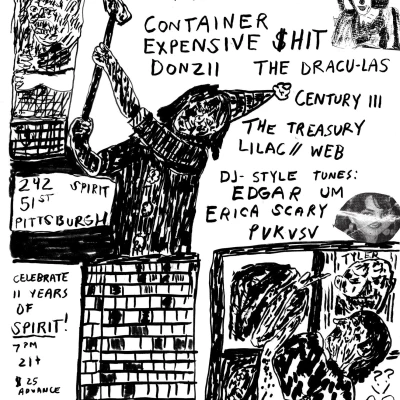 CONTAINER
EXPENSIVE $HIT
DONZII THE DRACU-LAS
CENTURY III
THE TREASURY
LILAC // WEB
DJ-STYLE TUNES:
EDGAR UM
ERICA SCARY
PVKVSV
242 SPIRIT
51ST
PITTSBURGH
CELEBRATE
11 YEARS
OF
SPIRIT!
7PM
21+
$25
ADVANCE
TYLER
??